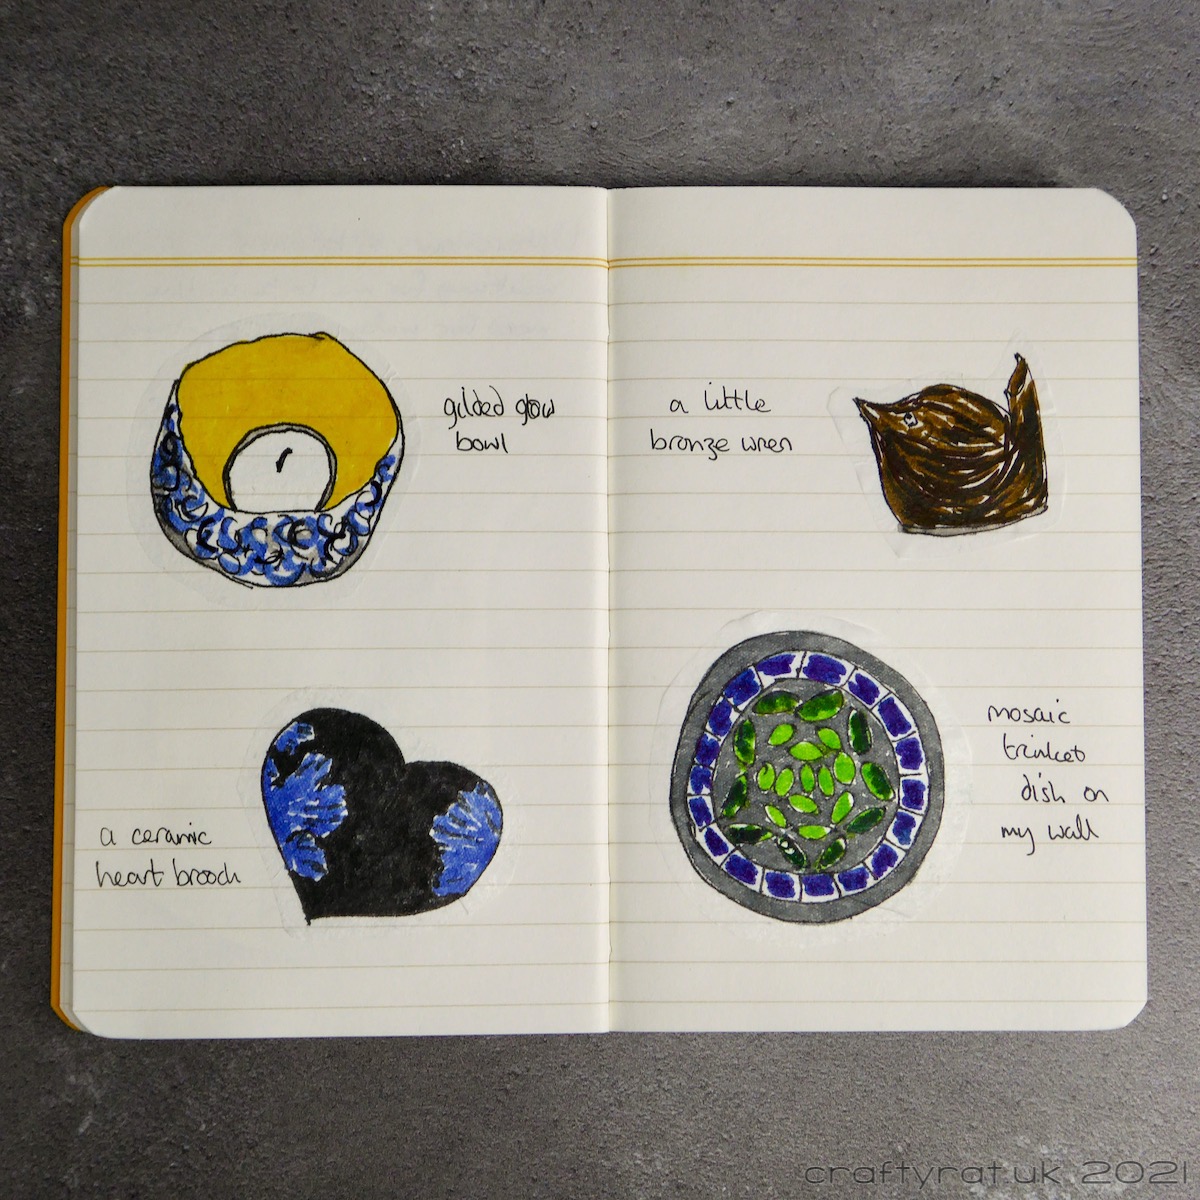 gilded glow
bowl
a ceramic
heart brooch
a little
bronze wren
mosaic
trinket
dish on
my wall
craftyrat.uk 2021